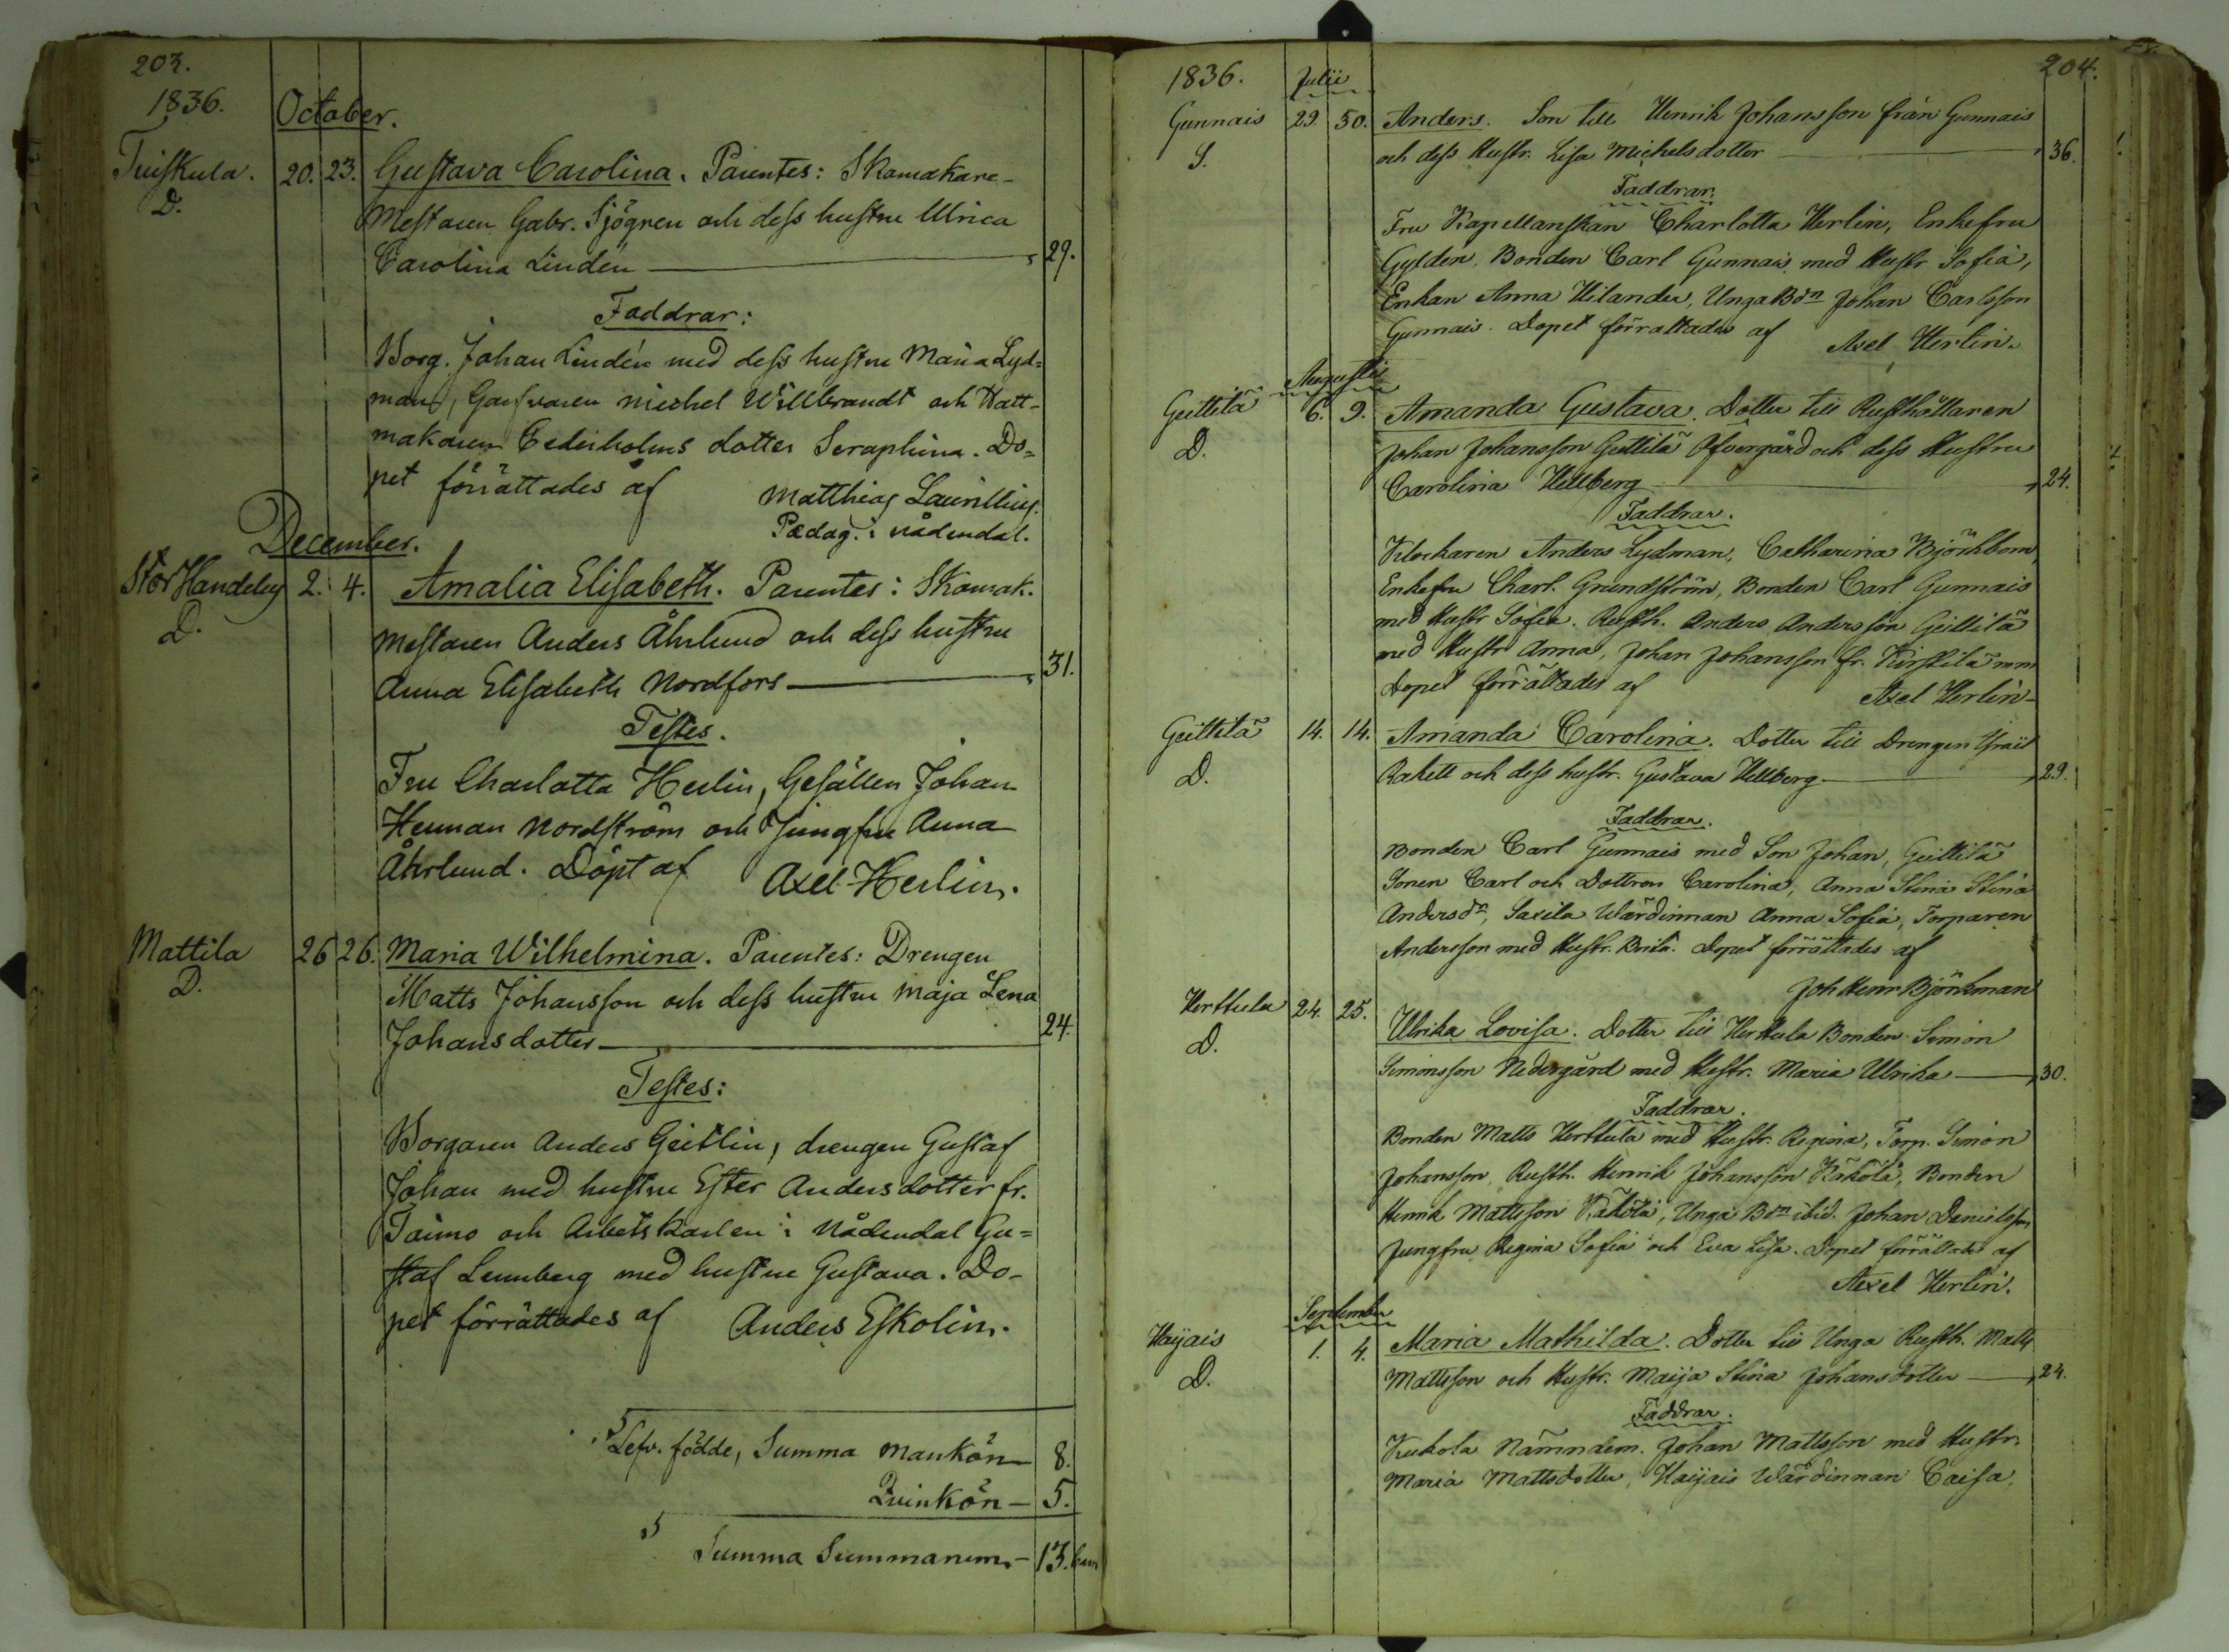 203.
1836.
October.
Tuiskula. 20. 23. Gustava Carolina. Parentes: Skomakare-
D.
Mestaren Gabr. Sjögren och dess hustru Ulrica
Carolina Lindén 29.
Faddrar:
Borg. Johan Lindén med dess hustru Maria Lyd=
man, Garfvaren Michel Willbrandt och Hatt-
makaren Cederholms dotter Seraphina. Do=
pet förrättades af Matthias Laurillius.
Pædag. i Nådendal.
December.
Stor Handeby 2. 4. Amalia Elisabeth. Parentes: Skomak.
D.
mestaren Anders Åhrlund och dess hustru
Anna Elisabeth Nordfors 31.
Testes.
Fru Charlotta Herlin, Gesällen Johan
Herman Nordström och Jungfru Anna
Åhrlund. Döpt af Axel Herlin.
Mattila 26 26. Maria Wilhelmina. Parentes: Drengen
D.
Matts Johansson och dess hustru Maja Lena
Johansdotter 24.
Testes:
Borgaren Anders Geitlin, drengen Gustaf
Johan med hustru Ester Andersdotter fr.
Taimo och Arbetskarlen i Nådendal Gu=
staf Lennberg med hustru Gustava. Do-
pet förrättades af Anders Eskolin.
Lefv. födde, Summa mankön 8.
Qvinkön 5.
Summa Summarum 13. barn
204.
1836. Julii
Gunnais 29. 30. Anders. Son till Henrik Johansson från Gunnais
S.
och dess Hustr. Lisa Michelsdotter 36.
Faddrar.
Fru Kapellanskan Charlotta Herlin, Enkefru
Gylden, Bonden Carl Gunnais med Hustr Sofia,
Enkan Anna Hilander, Unga Bdn Johan Carlsson
Gunnais. Dopet förrättades af Axel Herlin.
Augusti
Geittilä 6. 9. Amanda Gustava. Dotter till Rusthållaren
D.
Johan Johansson Geittilä Öfvergård och dess Hustru
Carolina Hellberg 24.
Faddrar.
Klockaren Anders Lydman, Catharina Björkbom,
Enkefru Charl. Grundström, Bonden Carl Gunnais
med Hustr Sofia. Rusth. Anders Andersson Geittilä
med Hustr Anna, Johan Johansson fr. Kirstilä mm
Dopet förrättades af Axel Herlin
Geittilä 14. 14. Amanda Carolina. Dotter till Drengen Israël
D.
Rakett och dess hustr. Gustava Hellberg 29.
Faddrar.
Bonden Carl Gunnais med Son Johan, Geittilä
Sonen Carl och Dottren Carolina, Anna Stina Stina
Andersdr, Saxila Wärdinnan Anna Sofia, Torparen
Andersson med Hustr. Brita. Dopet förrättades af
Joh Henr Björkman
Herttula 24. 25.
D.
Ulrika Lovisa. Dotter till Herttula Bonden Simon
Simonsson Nedergård med Hustr. Maria Ulrika 30.
Faddrar.
Bonden Matts Herttula med Hustr. Regina, Torp. Simon
Johansson, Rusth. Henrik Johansson Käkölä, Bonden
Henrik Mattsson Käkölä, Unga Bdn ibid. Johan Danielsson
Jungfru Regina Sofia och Eva Lisa. Dopet förrättades af
Axel Herlin.
September
Haijais 1. 4. Maria Mathilda. Dotter till Unga Rusth. Matts
D.
Mattsson och Hustr. Maija Stina Johansdotter 24.
Faddrar.
Kukola Nämndem. Johan Mattsson med Hustr.
Maria Mattsdotter, Haijais Wärdinnan Caisa,